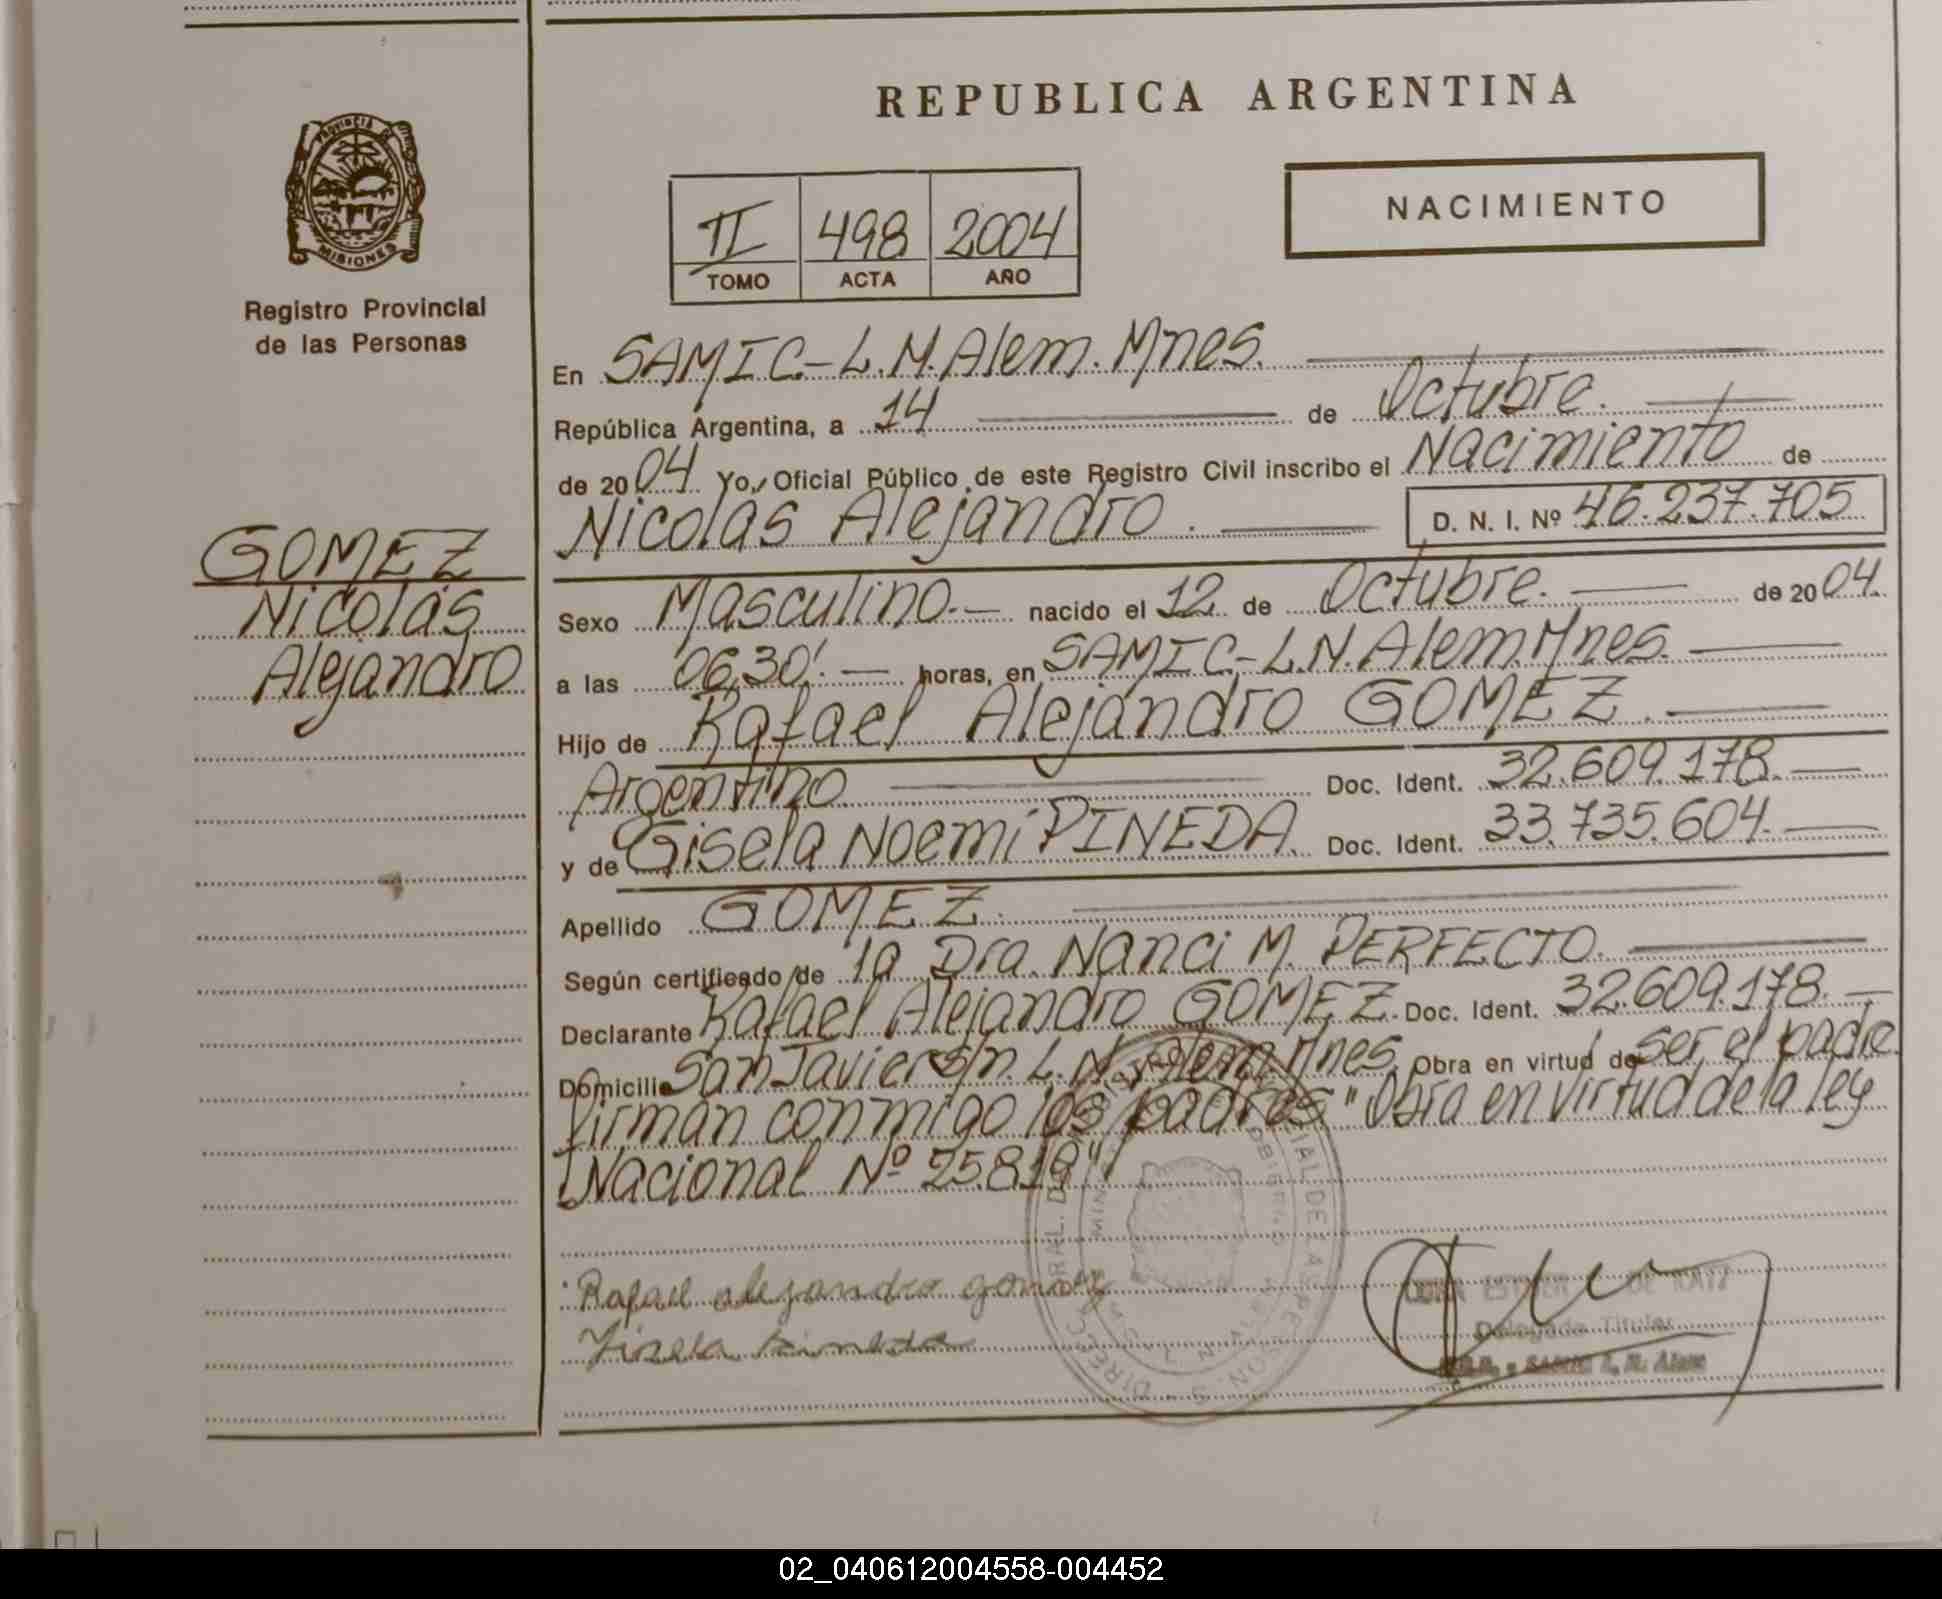 REPUBLICA ARGENTINA
NACIMIENTO
II 498 2004
TOMO ACTA AÑO
PROVINCIA DE
MISIONES
Registro Provincial
de las Personas
GOMEZ
Nicolás
Alejandro
En SAMIC-L.N.Alem.Mnes.
República Argentina, a 14 de Octubre.
de 2004 Yo, Oficial Público de este Registro Civil inscribo el Nacimiento de
Nicolás Alejandro. D. N. I. Nº 46.237.705
Sexo Masculino.- nacido el 12 de Octubre. de 2004.
a las 06,30'.- horas, en SAMIC-L.N.Alem.Mnes.
Hijo de Rafael Alejandro GOMEZ.
Argentino. Doc. Ident. 32.609.178.
y de Gisela Noemi PINEDA. Doc. Ident. 33.735.604.
Apellido GOMEZ.
Según certificado de la Dra. Nanci M. PERFECTO.
Declarante Rafael Alejandro GOMEZ. Doc. Ident. 32.609.178.
Domicilio San Javier s/n. L.N.Alem.Mnes. Obra en virtud de ser el padre
firman conmigo los padres "Obra en virtud de la ley
Nacional Nº 25.819"
Rafael alejandro gomez
Delegada Titular
02_040612004558-004452